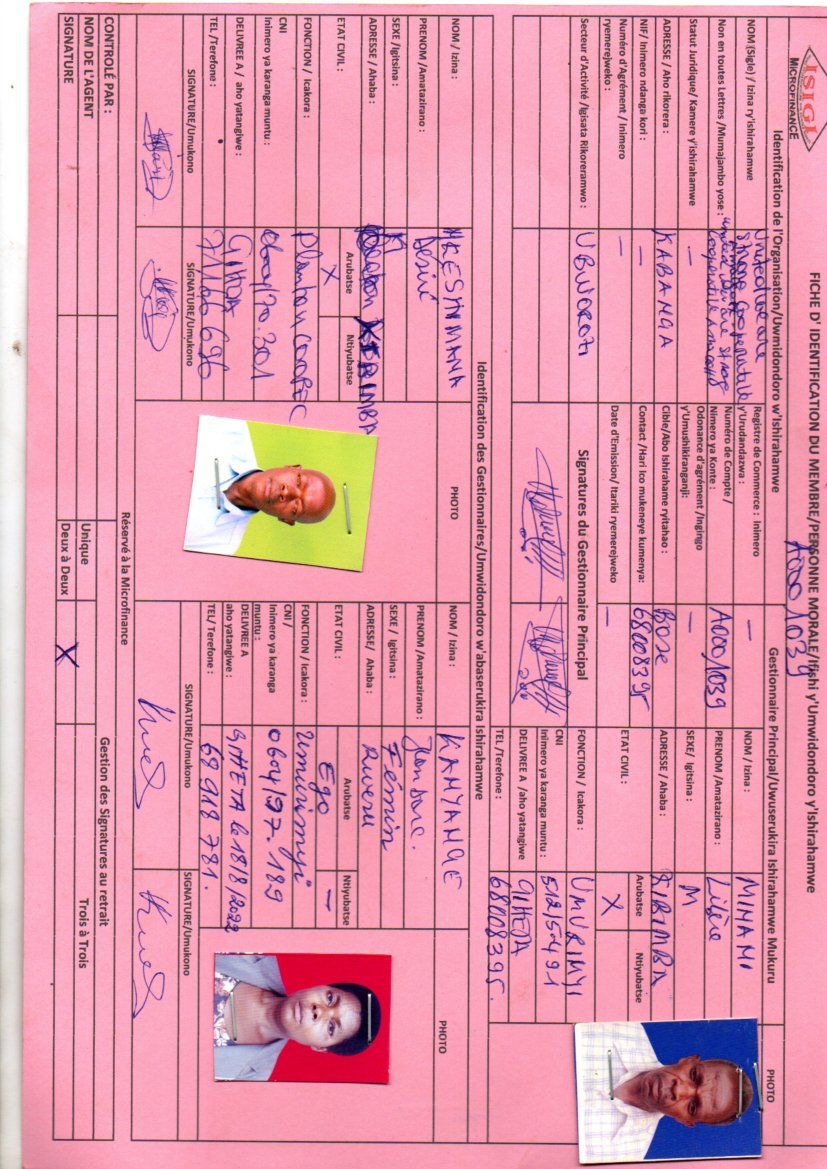 ISIGI
MICROFINANCE
FICHE D' IDENTIFICATION DU MEMBRE/PERSONNE MORALE/Ifishi y'Umwidondoro y'Ishirahamwe
A0001039
Identification de l'Organisation/Uwmidondoro w'Ishirahamwe
Gestionnaire Principal/Uwuserukira Ishirahamwe Mukuru
PHOTO
NOM (Sigle) / Izina ry'ishirahamwe
United we are
Strong Cooperative
Non en toutes Lettres /Mumajambo yose :
United we are Strong
Cooperative
Statut Juridique/ Kamere y'ishirahamwe
—
ADRESSE / Aho rikorera :
KABANGA
NIF/ Inimero ndanga kori :
—
Numéro d'Agrément / Inimero
ryemerejweko :
—
Secteur d'Activité /Igisata Rikoreramwo :
UBWOROZI
Registre de Commerce : Inimero
y'Urudandazwa :
—
Numéro de Compte /
Nimero ya Konte :
A0001039
Odonance d'agrément /Ingingo
y'Umushikiranganji:
—
Cible/Abo Ishirahame ryitahao :
Bose
Contact /Hari ico mukeneye kumenya:
68008395
Date d'Emission/ Itariki ryemerejweko
—
Signatures du Gestionnaire Principal
NOM / Izina :
MINANI
PRENOM /Amatazirano :
Libère
SEXE/ Igitsina :
M
ADRESSE / Ahaba :
KIRIMBA
ETAT CIVIL :
Arubatse
Ntiyubatse
X
FONCTION / Icakora :
UMURIMYI
CNI
Inimero ya karanga muntu :
DELIVREE A /aho yatangiwe
GIHETA
TEL /Terefone :
68008395.
Identification des Gestionnaires/Umwidondoro w'abaserukira Ishirahamwe
NOM / Izina :
NKESHIMANA
PRENOM /Amatazirano :
Désiré
SEXE /Igitsina :
M
ADRESSE / Ahaba :
KIRIMBA
ETAT CIVIL :
Arubatse
Ntiyubatse
X
FONCTION / Icakora :
Planton COOPEC
CNI
Inimero ya karanga muntu :
0604/70.301
DELIVREE A / aho yatangiwe :
GIHETA
TEL /Terefone :
71106696
SIGNATURE/Umukono
SIGNATURE/Umukono
PHOTO
NOM / Izina :
KANYANGE
PRENOM /Amatazirano :
SEXE / Igitsina :
Fémin
ADRESSE/ Ahaba :
Rweru
ETAT CIVIL :
Arubatse
Ntiyubatse
Ego
—
FONCTION / Icakora :
Umurimyi
CNI /
Inimero ya karanga
muntu :
0604/97.189
DELIVREE A
aho yatangiwe :
GIHETA le 18/8/2022
TEL/ Terefone :
68918781.
SIGNATURE/Umukono
SIGNATURE/Umukono
PHOTO
Réservé à la Microfinance
CONTROLÉ PAR :
NOM DE L'AGENT
SIGNATURE
Gestion des Signatures au retrait
Unique
Deux à Deux
X
Trois à Trois